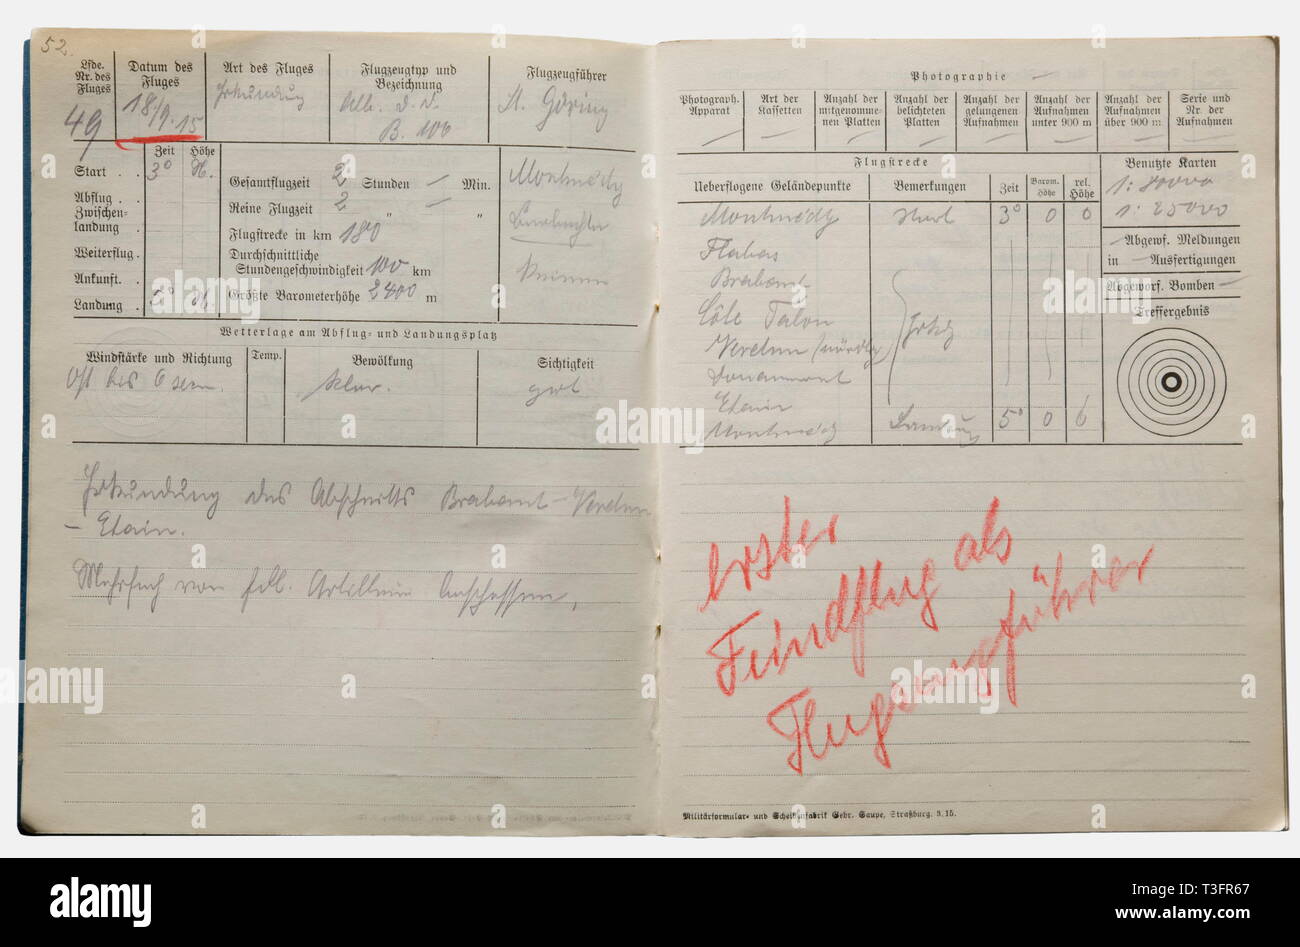 52.
Lfde. Nr. des Fluges
Datum des Fluges
Art des Fluges
Flugzeugtyp und Bezeichnung
Flugzeugführer
49
18/9.15
Erkundung
Alb. D. D.
B. 106
Lt. Göring
Zeit Höhe
Start . . 3⁰
Abflug . .
Zwischenlandung .
Weiterflug .
Ankunft. .
Landung . 5⁰
Gesamtflugzeit 2 Stunden — Min.
Reine Flugzeit 2 " — "
Flugstrecke in km 180
Durchschnittliche Stundengeschwindigkeit 100 km
Größte Barometerhöhe 2400 m
Montmédy
Beobachter
Wetterlage am Abflug- und Landungsplatz
Windstärke und Richtung
Temp.
Bewölkung
Sichtigkeit
Ost bis 6 sem.
klar.
gut
Erkundung des Abschnitts Brabant – Verdun
– Etain.
Mehrfach von fdl. Artillerie beschossen,
Photographie —
Photograph. Apparat
Art der Kassetten
Anzahl der mitgenommenen Platten
Anzahl der belichteten Platten
Anzahl der gelungenen Aufnahmen
Anzahl der Aufnahmen unter 900 m
Anzahl der Aufnahmen über 900 m
Serie und Nr. der Aufnahmen
Flugstrecke
Benutzte Karten
1:80000
1:25000
Ueberflogene Geländepunkte
Bemerkungen
Zeit
Barom. Höhe
rel. Höhe
Montmédy Start 3⁰ 0 0
Flabas
Brabant
Côte Talou
Verdun (nördlg) Erkdg
Douaumont
Etain
Montmédy Landung 5⁰ 0 6
— Abgews. Meldungen
in — Ausfertigungen
Abgeworf. Bomben —
Treffergebnis
erster
Feindflug als
Flugzeugführer
Militärformular- und Scheibenfabrik Gebr. Gaupe, Straßburg. 3. 15.
alamy
Image ID: T3FR67
www.alamy.com